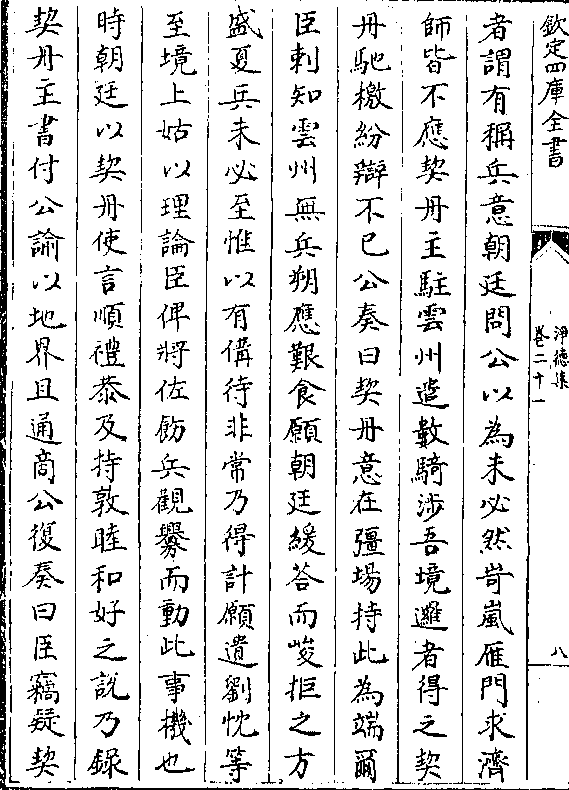 欽定四庫全書
淨德集
卷二十一
八
者謂有稱兵意朝廷問公以為未必然岢嵐雁門求濟
師皆不應契丹主駐雲州遣數騎涉吾境邏者得之契
丹馳檄紛辯不已公奏曰契丹意在彊場持此為端爾
臣刺知雲州無兵朔應艱食願朝廷緩荅而峻拒之方
盛夏兵未必至惟以有備待非常乃得計願遣劉忱等
至境上姑以理論臣俾將佐飭兵觀釁而動此事機也
時朝廷以契丹使言順禮恭及持敦睦和好之説乃録
契丹主書付公諭以地界且通商公復奏曰臣竊疑契